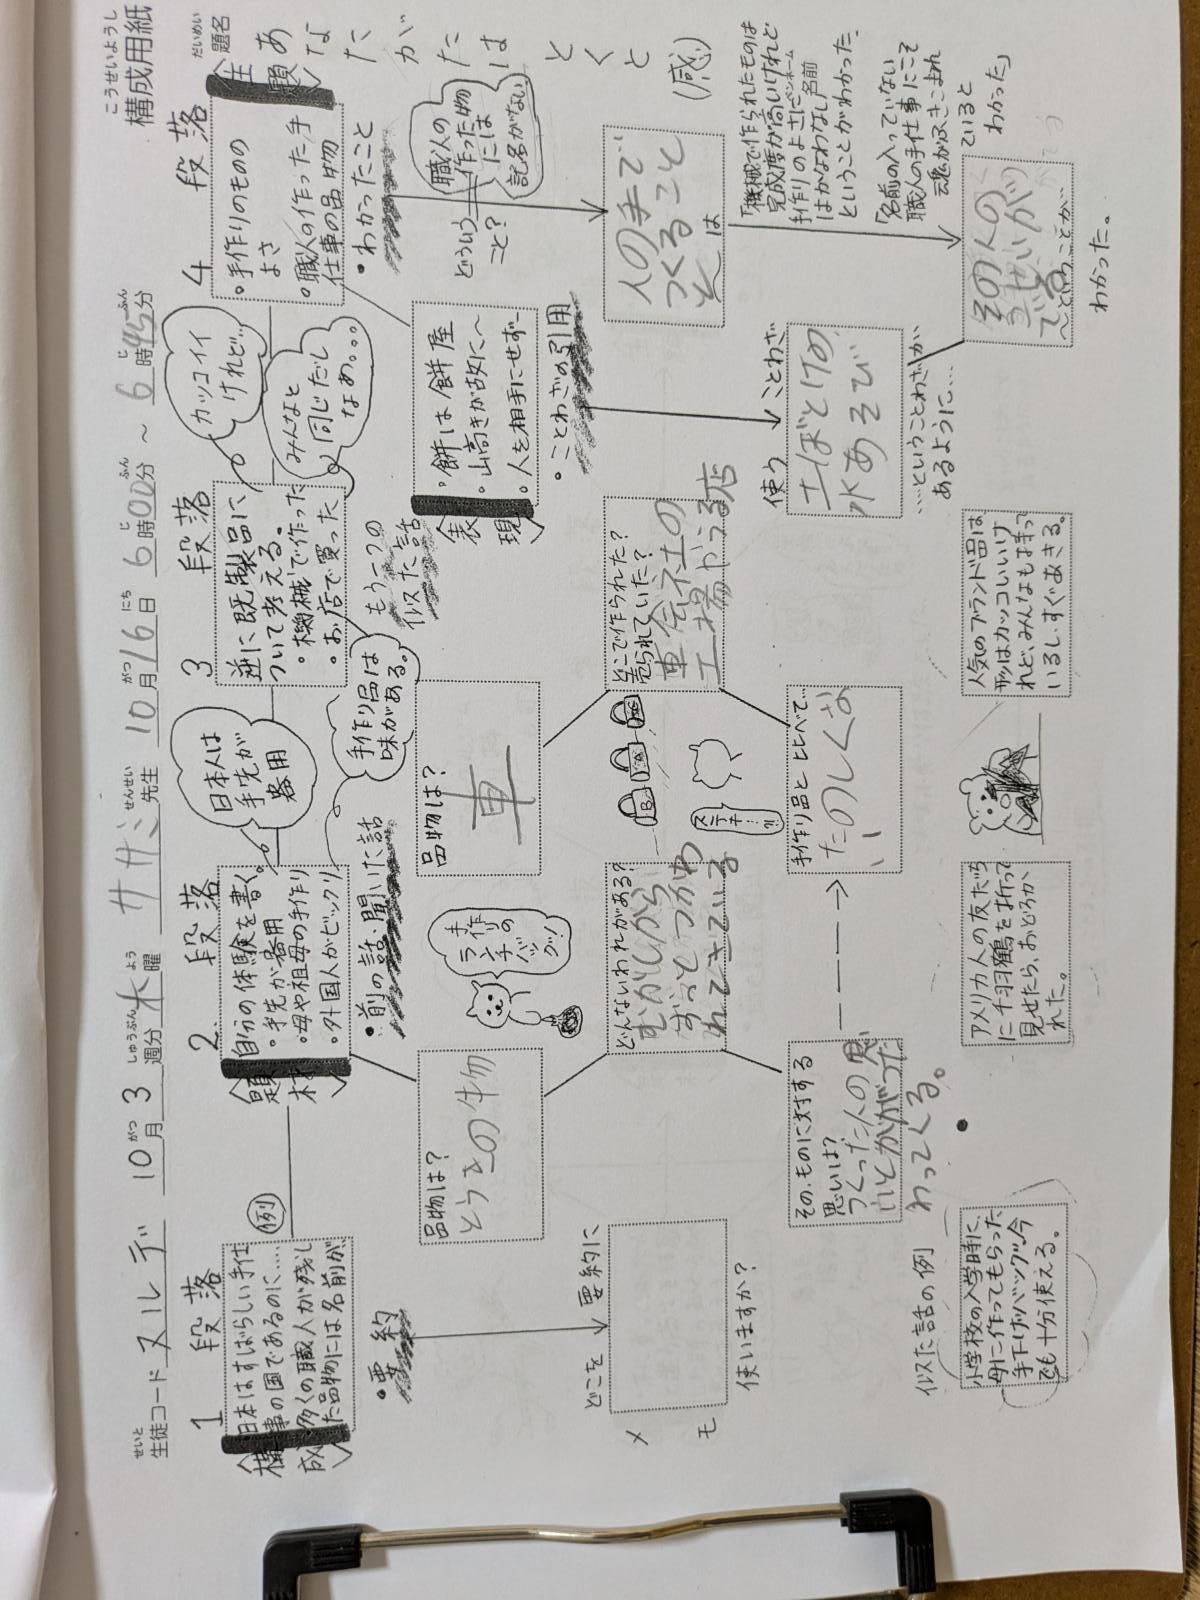 こうせいようし
構成用紙
せいと
生徒コード ヌルデ 10月3週分 木曜 サザミ先生 10月16日 6時00分 ～ 6時45分
だいめい
題名
あなたがたはとくと (感)
1 段落
構成
日本はすばらしい手仕
事の国であるのに…
多くの職人が残し
た品物には名前が、
・要約
どこを 要約に
使いますか?
メモ
例
2 段落
題材
自分の体験を書く。
・手先が器用
・母や祖母の手作り
・外国人がビックリ
日本人は
手先が
器用
手作り品は
味がある。
・前の話・聞いた話
品物は?
とうきの牛物
手作りの
ランチ
バッグ!
どんないわれがある?
むかしから
ずっとつかわ
れてきている
その、ものに対する
思いは?
つくった人の思
いとかがつた
わってくる。
似た話の例
小学校の入学時に、
母に作ってもらった
手下げバッグ、今
でも十分使える。
アメリカ人の友だち
に千羽鶴を折って
見せたら、おどろか
れた。
3 段落
逆に既製品に
ついて考える。
・機械で作った
・お店で買った
カッコイイ
けれど…
みんなと
同じだし
なぁ。。。
もう一つの
似た話
品物は?
車
どこで作られた?
売られていた?
車会社の
工場やうる店
ステキ…!?
手作り品と比べて…
たのしくな
い
人気のブランド品は
形はカッコいいけ
れど、みんなも持って
いるし、すぐあきる。
表現
・餅は餅屋
・山高きが故に～
・人を相手にせず～
・ことわざの引用
使う ことわざ
土ばとけの
水あそび
…ということわざが
あるように…
4 段落
主題
・手作りのものの
よさ
・職人の作った手
仕事の品物
・わかったこと
職人の
作った物
には
記名がない
どういう
こと?
人の手で
つくること
は
「機械で作られたものは
完成度が高いけれど
手作りのよさには
かなわない
ということがわかった。
「名前の入っていない
職人の手仕事にこそ
魂が吹きこまれ
ていると
わかった」
その人の
こせいがり
で
ということが…
わかった。